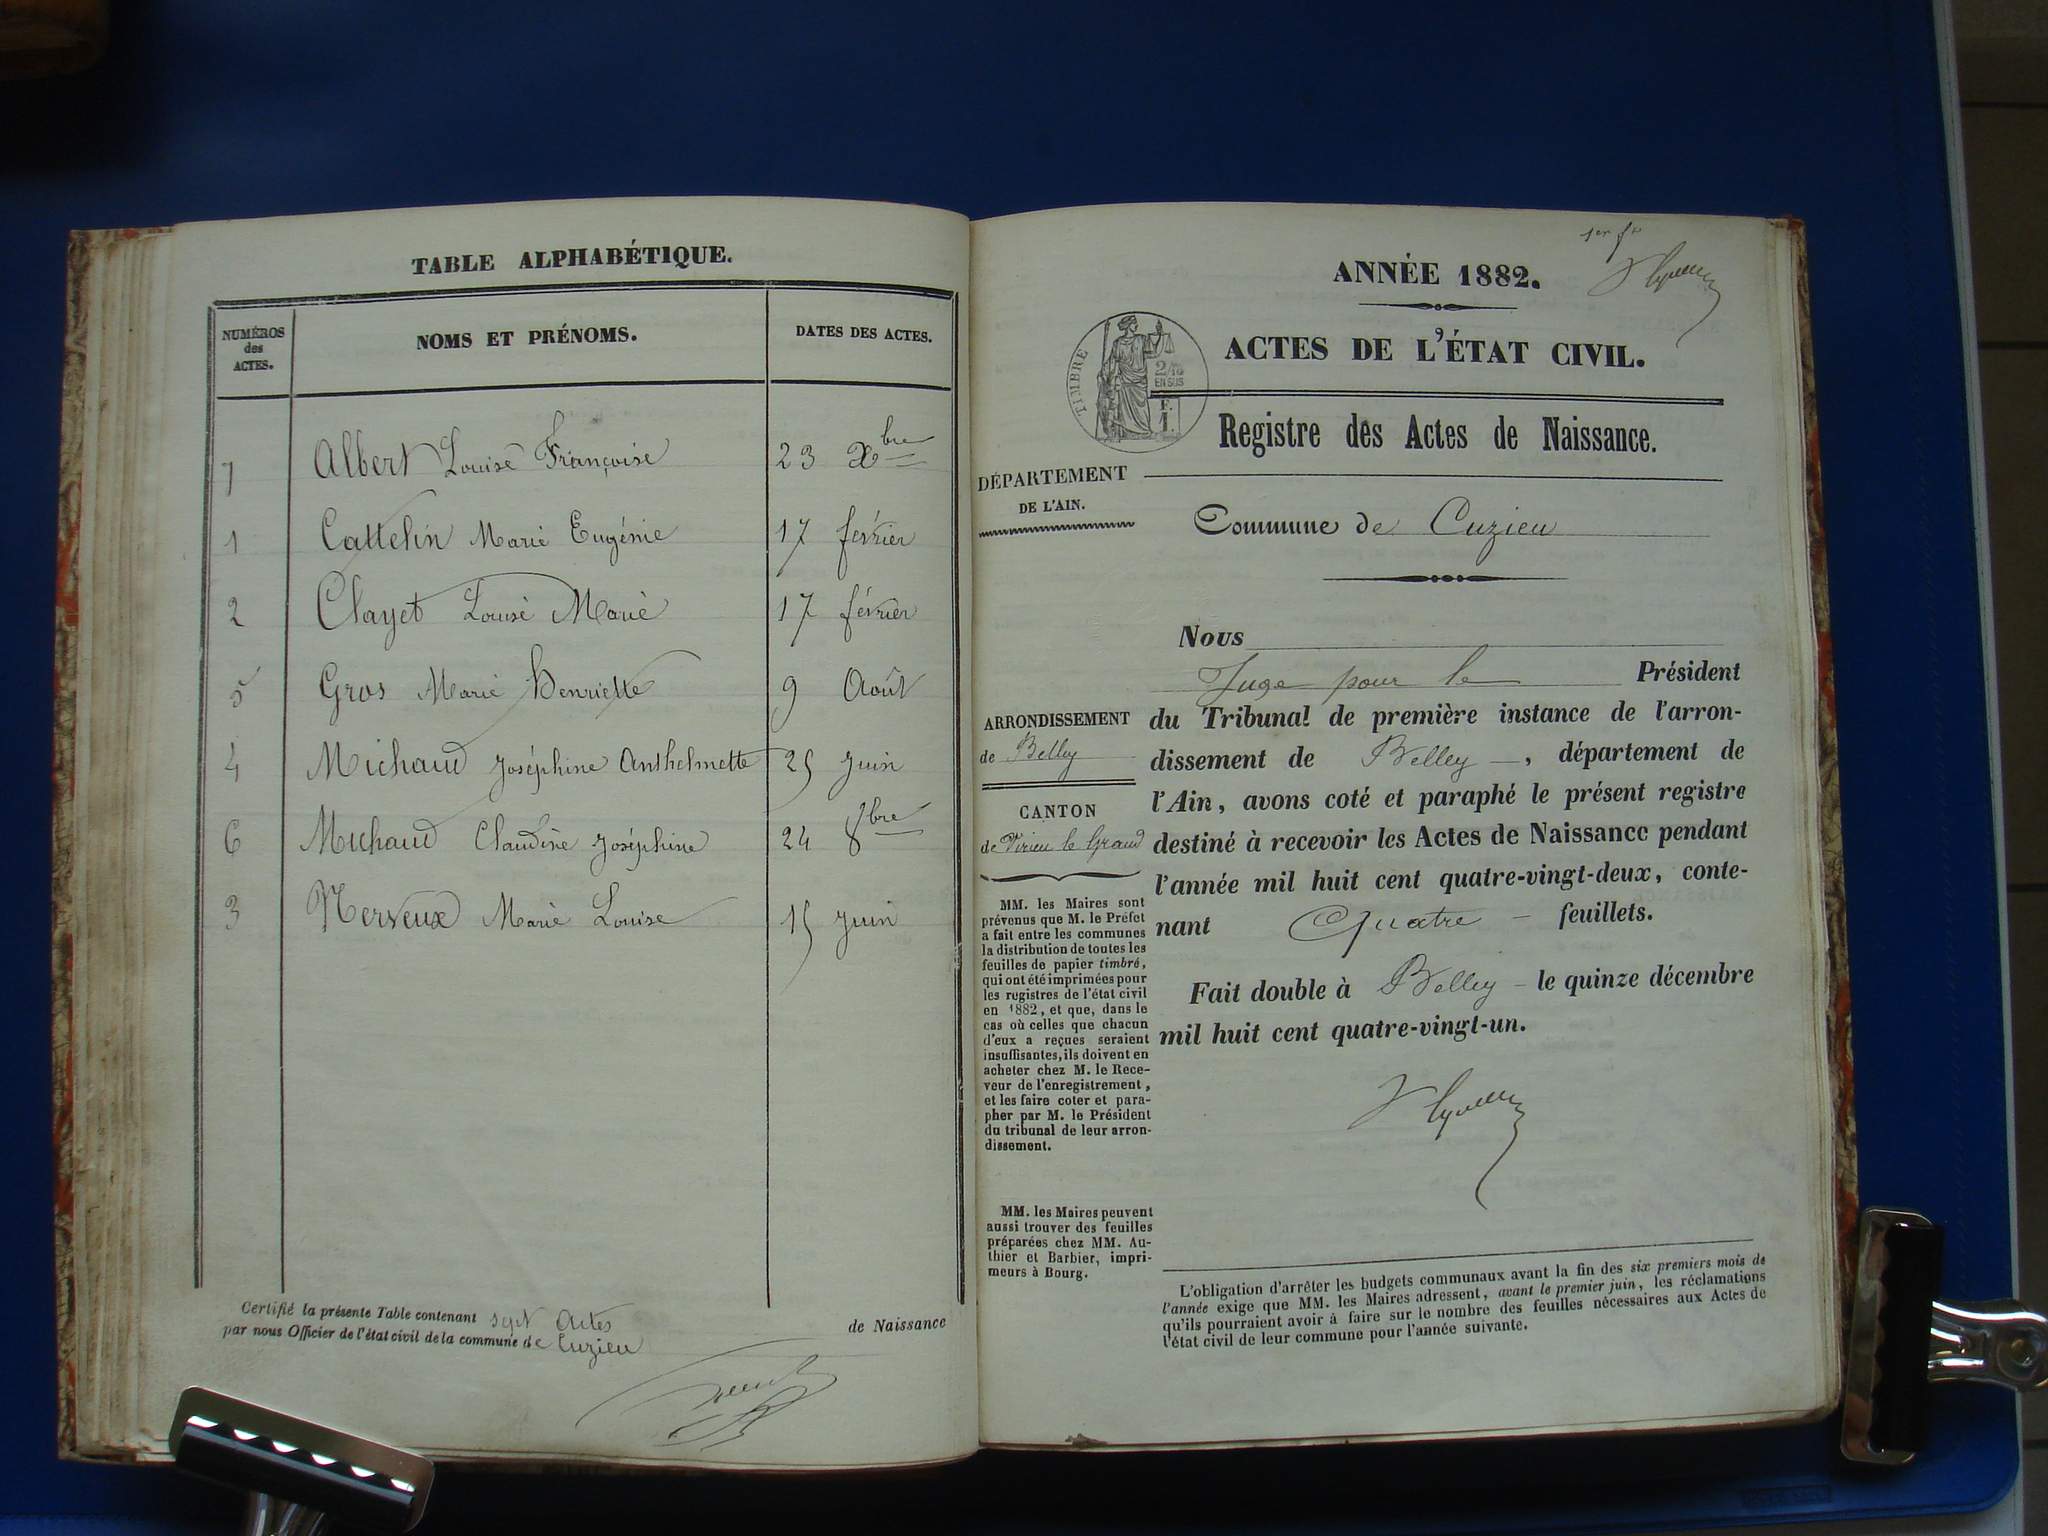 TABLE ALPHABÉTIQUE.
NUMÉROS
des
ACTES.
NOMS ET PRÉNOMS.
DATES DES ACTES.
7 Albert Louise Françoise 23 Xbre
1 Cattelin Marie Eugénie 17 février
2 Clayet Louise Marie 17 février
5 Gros Marie Henriette 9 Août
4 Michaud Joséphine Anthelmette 25 juin
6 Michaud Claudine Joséphine 24 8bre
3 Nerveux Marie Louise 15 juin
Certifié la présente Table contenant sept Actes de Naissance
par nous Officier de l'état civil de la commune de Cuzieu
1er ft
ANNÉE 1882.
ACTES DE L'ÉTAT CIVIL.
TIMBRE
2/10
EN SUS
F.
1.
Registre des Actes de Naissance.
DÉPARTEMENT
DE L'AIN.
Commune de Cuzieu
Nous
Juge pour le Président
du Tribunal de première instance de l'arron-
dissement de Belley, département de
l'Ain, avons coté et paraphé le présent registre
destiné à recevoir les Actes de Naissance pendant
l'année mil huit cent quatre-vingt-deux, conte-
nant Quatre feuillets.
Fait double à Belley le quinze décembre
mil huit cent quatre-vingt-un.
ARRONDISSEMENT
de Belley
CANTON
de Virieu le Grand
MM. les Maires sont
prévenus que M. le Préfet
a fait entre les communes
la distribution de toutes les
feuilles de papier timbré,
qui ont été imprimées pour
les registres de l'état civil
en 1882, et que, dans le
cas où celles que chacun
d'eux a reçues seraient
insuffisantes, ils doivent en
acheter chez M. le Rece-
veur de l'enregistrement,
et les faire coter et para-
pher par M. le Président
du tribunal de leur arron-
dissement.
MM. les Maires peuvent
aussi trouver des feuilles
préparées chez MM. Au-
thier et Barbier, impri-
meurs à Bourg.
L'obligation d'arrêter les budgets communaux avant la fin des six premiers mois de
l'année exige que MM. les Maires adressent, avant le premier juin, les réclamations
qu'ils pourraient avoir à faire sur le nombre des feuilles nécessaires aux Actes de
l'état civil de leur commune pour l'année suivante.